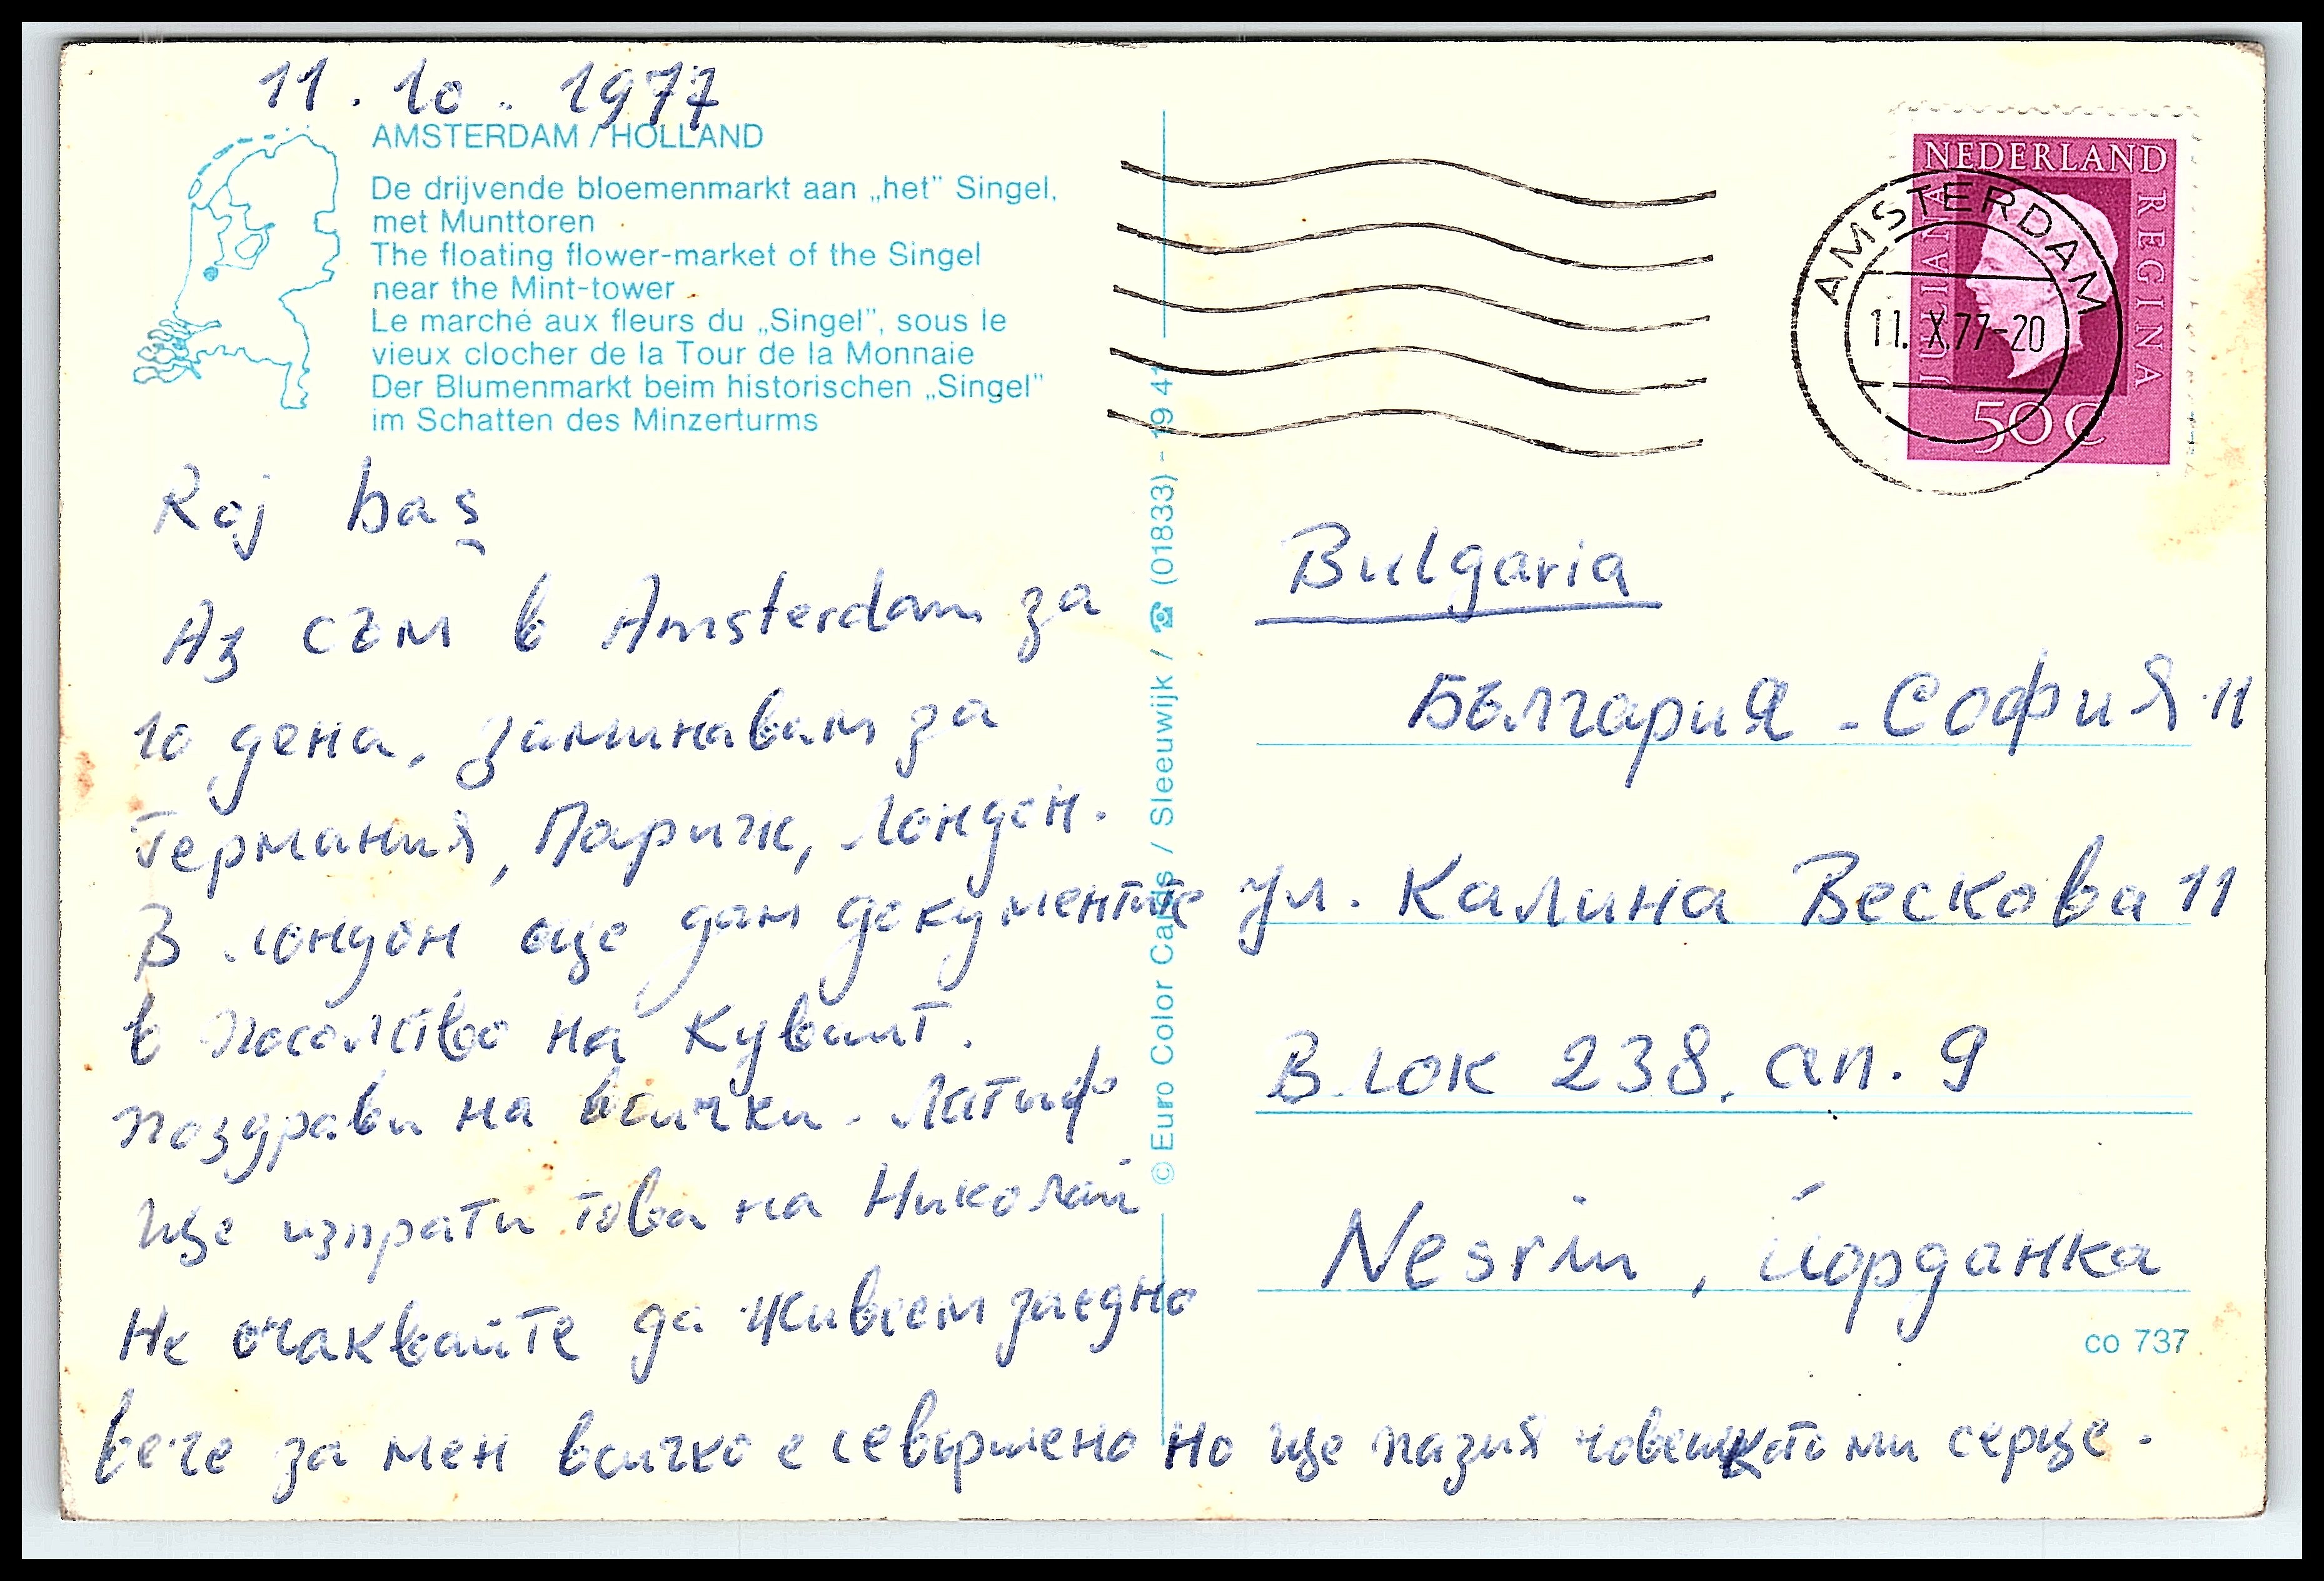 11. 10. 1977
AMSTERDAM / HOLLAND
De drijvende bloemenmarkt aan „het” Singel,
met Munttoren
The floating flower-market of the Singel
near the Mint-tower
Le marché aux fleurs du „Singel”, sous le
vieux clocher de la Tour de la Monnaie
Der Blumenmarkt beim historischen „Singel”
im Schatten des Minzerturms
Roj baş
Аз съм в Amsterdam за
10 дена, заминавам за
Германия, Париж, Лондон.
В Лондон още дам документите
в посолство на Куваит.
поздрави на всички. Латиф
Ще изпрати това на Николай
Не очаквайте да живеем заедно
вече за мен всичко е севършено но ще пазия човешкото ми серце.
© Euro Color Cards / Sleeuwijk / ☎ (01833) - 19 41
NEDERLAND
JULIANA REGINA
50 C
AMSTERDAM
11.X.77-20
Bulgaria
България - София 11
ул. Калина Вескова 11
Блок 238, ап. 9
Nesrin, Йорданка
co 737